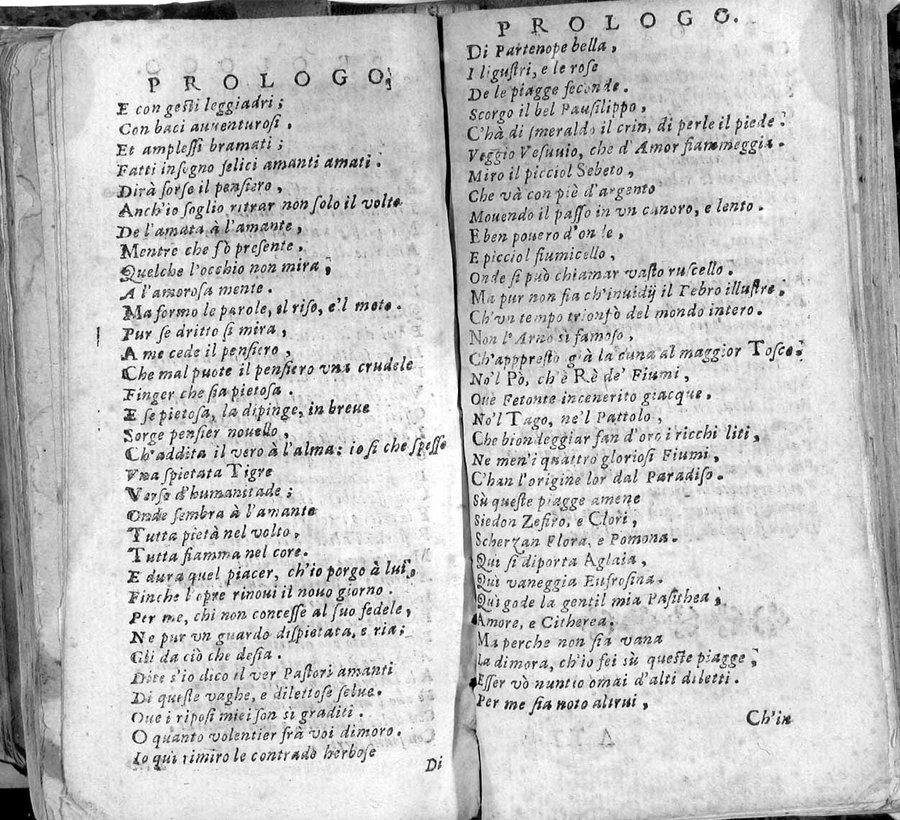 PROLOGO;
E con gesti leggiadri;
Con baci auuenturosi,
Et amplessi bramati;
Fatti insegno felici amanti amati.
Dirà forse il pensiero,
Anch'io soglio ritrar non solo il volto
De l'amata à l'amante,
Mentre che fò presente.
Quelche l'occhio non mira;
A l'amorosa mente.
Ma formo le parole, il riso, e'l moto.
Pur se dritto si mira,
A me cede il pensiero,
Che mal puote il pensiero vna crudele
Finger che sia pietosa.
E se pietosa, la dipinge, in breue
Sorge pensier nouello,
Ch'addita il vero à l'alma: io si che spesso
Vna spietata Tigre
Verso d'humanitade;
Onde sembra à l'amante
Tutta pietà nel volto,
Tutta fiamma nel core.
E dura quel piacer, ch'io porgo à lui,
Finche l'opre rinoui il nouo giorno.
Per me, chi non concesse al suo fedele,
Ne pur vn guardo dispietata, e ria;
Gli da ciò che desia.
Dite s'io dico il ver Pastori amanti
Di queste vaghe, e dilettose selue.
Oue i riposi miei son sì graditi.
O quanto volentier frà voi dimoro.
Io quì rimiro le contrade herbose
Di
PROLOGO.
Di Partenope bella,
I ligustri, e le rose
De le piagge feconde.
Scorgo il bel Pausilippo,
C'hà di smeraldo il crin, di perle il piede.
Veggio Vesuuio, che d'Amor fiammeggia.
Miro il picciol Sebeto,
Che và con piè d'argento
Mouendo il passo in vn canoro, e lento.
E ben pouero d'onde,
E picciol fiumicello,
Onde si può chiamar vasto ruscello.
Ma pur non fia ch'inuidij il Tebro illustre;
Ch'vn tempo trionfò del mondo intero.
Non l'Arno sì famoso,
Ch'apppresto già la cuna al maggior Tosco.
No'l Pò, ch'è Rè de' Fiumi,
Oue Fetonte incenerito giacque.
No'l Tago, ne'l Pattolo,
Che biondeggiar fan d'oro i ricchi liti,
Ne men'i quattro gloriosi Fiumi,
C'han l'origine lor dal Paradiso.
Sù queste piagge amene
Siedon Zefiro, e Clori,
Scherzan Flora, e Pomona.
Qui si diporta Aglaia,
Quì vaneggia Eufrosina.
Qui gode la gentil mia Pasithea;
Amore, e Citherea.
Ma perche non sia vana
La dimora, ch'io fei sù queste piagge;
Esser vò nuntio omai d'alti diletti.
Per me sia noto altrui,
Ch'in